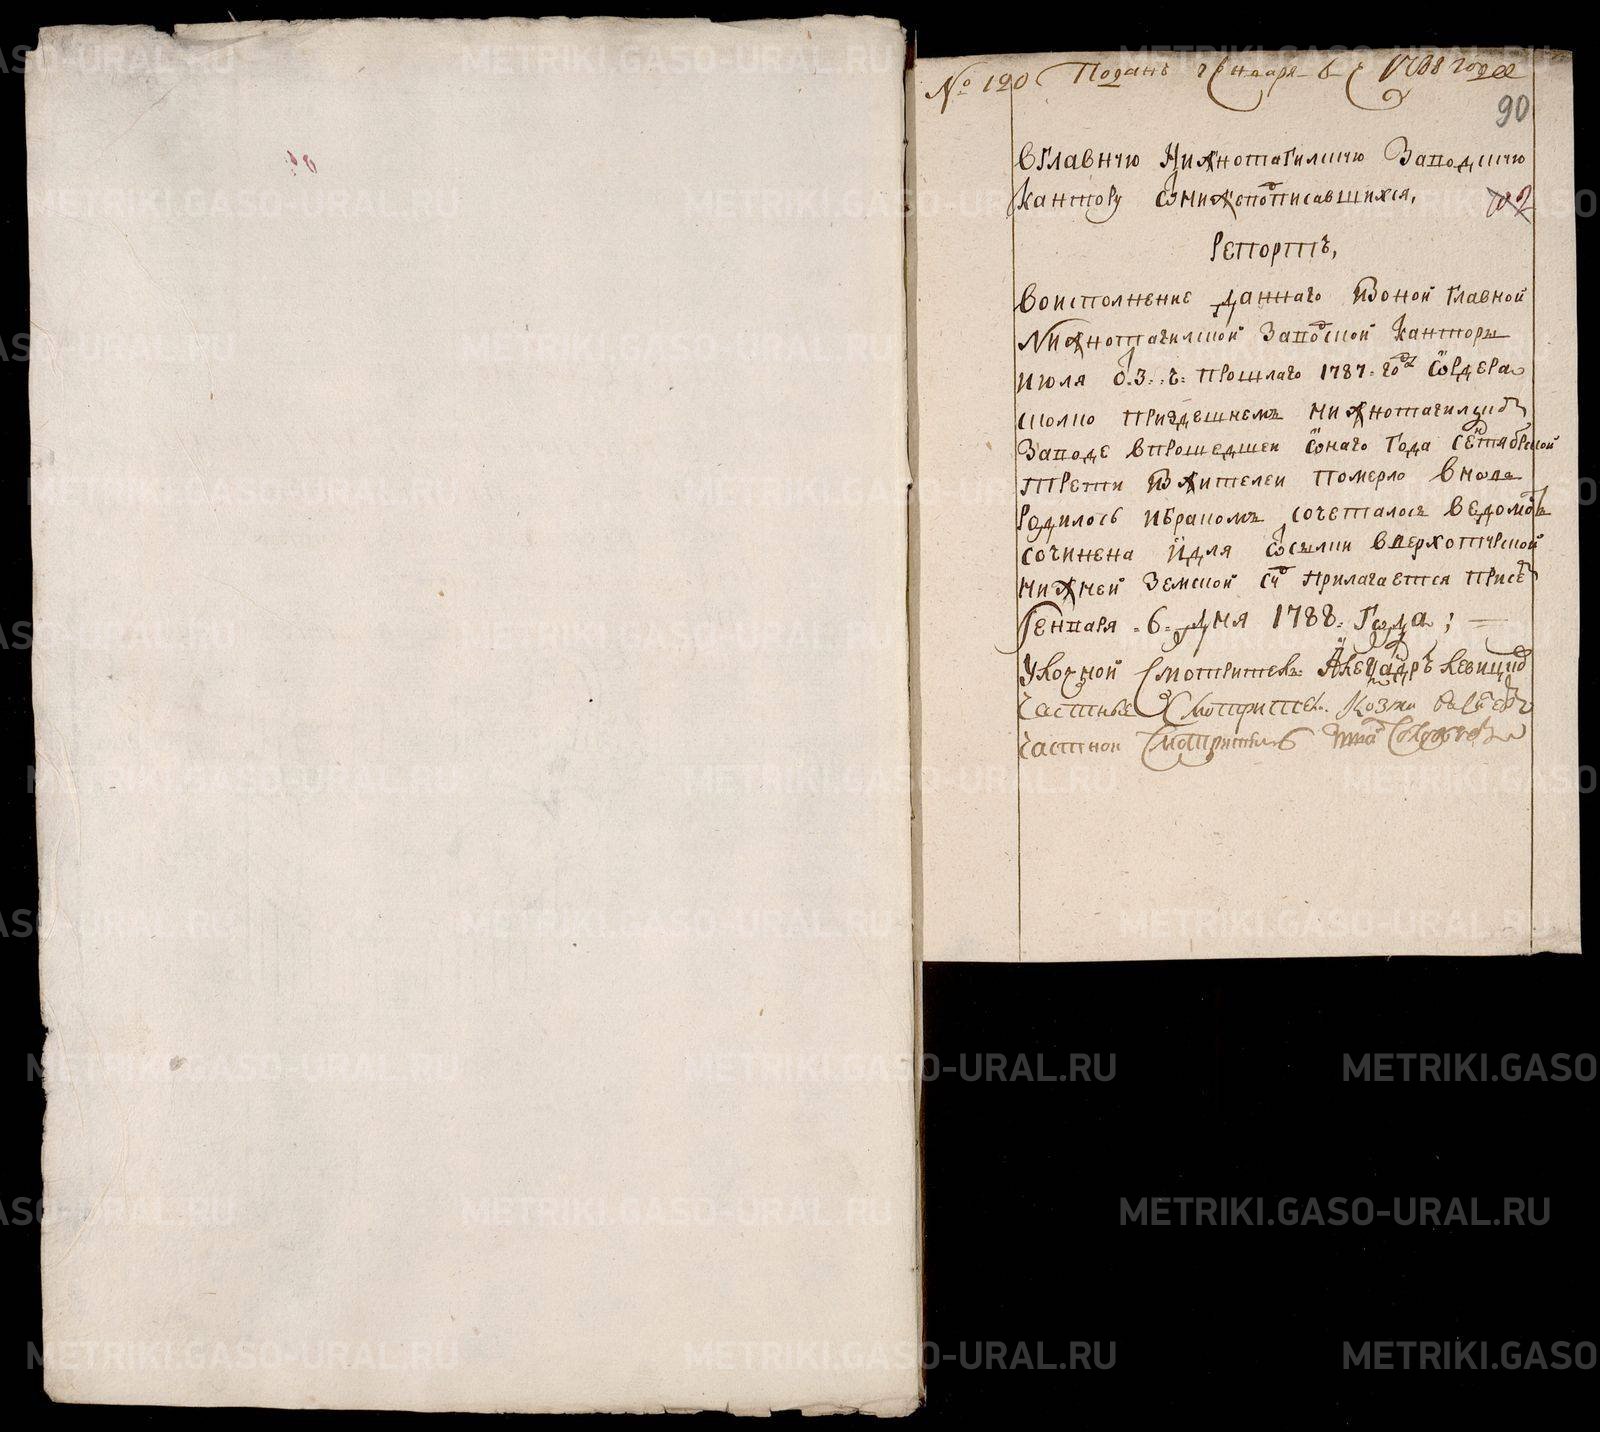 № 120 Поданъ генваря 6 г 1788 года
90
вглавную Нижнотагилскую Заводскую
кантору ѿнижеподписавшихся,
Репортъ,
Воисполнение даннаго изоной главной
Нижнотагилской Заводской канторы
июля 3. ч. прошлаго 1787. год ѿрдера
сколко приздешнемъ нижнотагилском
Заводе впрошедшеи ѿнаго года сентябрской
трети изжителеи померло вновь
родилось ибракомъ сочеталось ведомость
сочинена идля ѿсылки вверхотурской
нижней Земской суд прилагается присемъ
Генваря 6. дня 1788. Года;
Смотритель
частные Смотритель Козма
частной Смотритель
METRIKI.GASO-URAL.RU